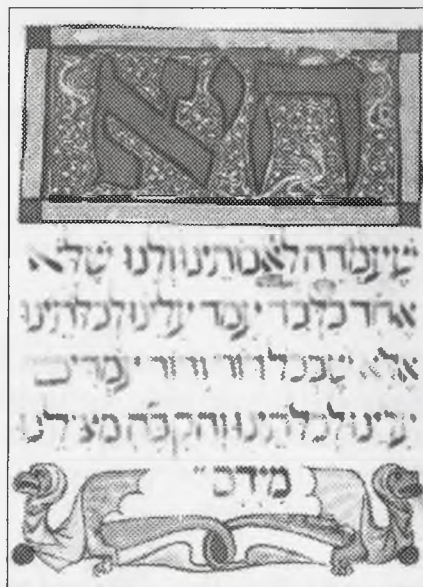 היא
שעמדה לאבתינו ולנו שלא
אחד בלבד עמד עלינו לכלתינו
אלא שבכל דור ודור עמדים
עלינו לכלתינו והקבה מצילנו
מידם